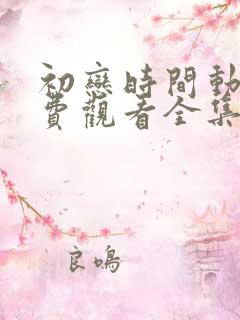 初戀時間動
費觀看全集
良鳴